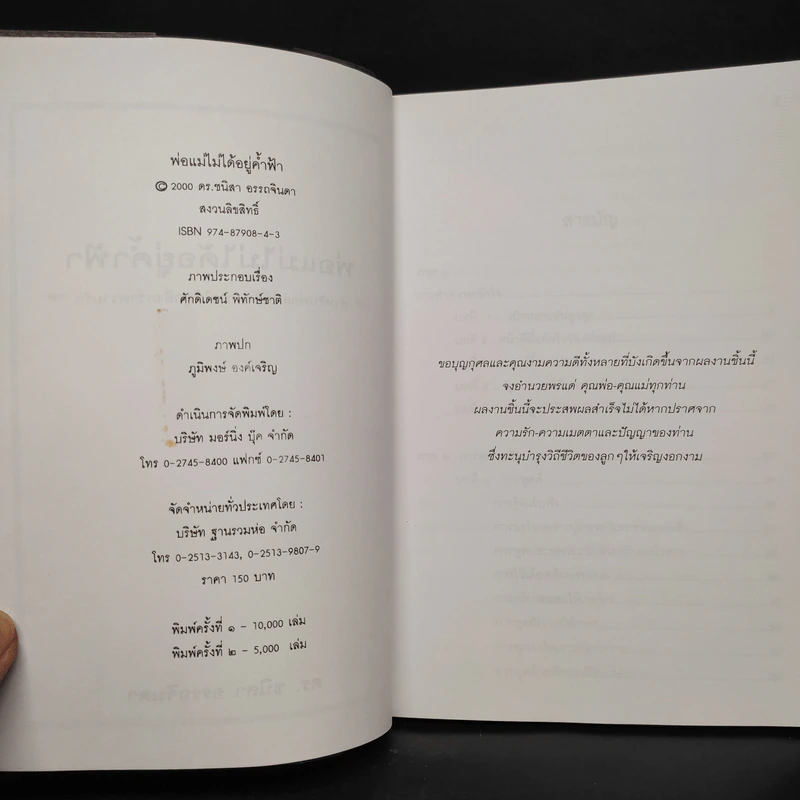 พ่อแม่ไม่ได้อยู่ค้ำฟ้า
© 2000 ดร.ชนิสา อรรถจินดา
สงวนลิขสิทธิ์
ISBN 974-87908-4-3
ภาพประกอบเรื่อง
ศักดิเดชน์ พิทักษ์ชาติ
ภาพปก
ภูมิพงษ์ องค์เจริญ
ดำเนินการจัดพิมพ์โดย :
บริษัท มอร์นิ่ง บุ๊ค จำกัด
โทร 0-2745-8400 แฟกซ์ 0-2745-8401
จัดจำหน่ายทั่วประเทศโดย :
บริษัท ฐานรวมห่อ จำกัด
โทร 0-2513-3143, 0-2513-9807-9
ราคา 150 บาท
พิมพ์ครั้งที่ ๑ - 10,000 เล่ม
พิมพ์ครั้งที่ ๒ - 5,000 เล่ม
ขอบุญกุศลและคุณงามความดีทั้งหลายที่บังเกิดขึ้นจากผลงานชิ้นนี้
จงอำนวยพรแด่ คุณพ่อ-คุณแม่ทุกท่าน
ผลงานชิ้นนี้จะประสพผลสำเร็จไม่ได้หากปราศจาก
ความรัก-ความเมตตาและปัญญาของท่าน
ซึ่งทะนุบำรุงวิถีชีวิตของลูกๆให้เจริญงอกงาม